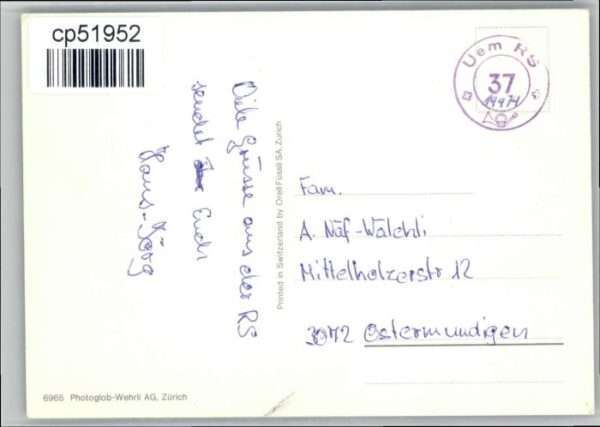 cp51952
Uem RS
37
Viele Grüsse aus der RS
sendet Euch
Hans-Jörg
Printed in Switzerland by Orell Füssli SA, Zürich
Fam.
A. Näf-Wälchli
Mittelholzerstr 12
3072 Ostermundigen
6965 Photoglob-Wehrli AG, Zürich